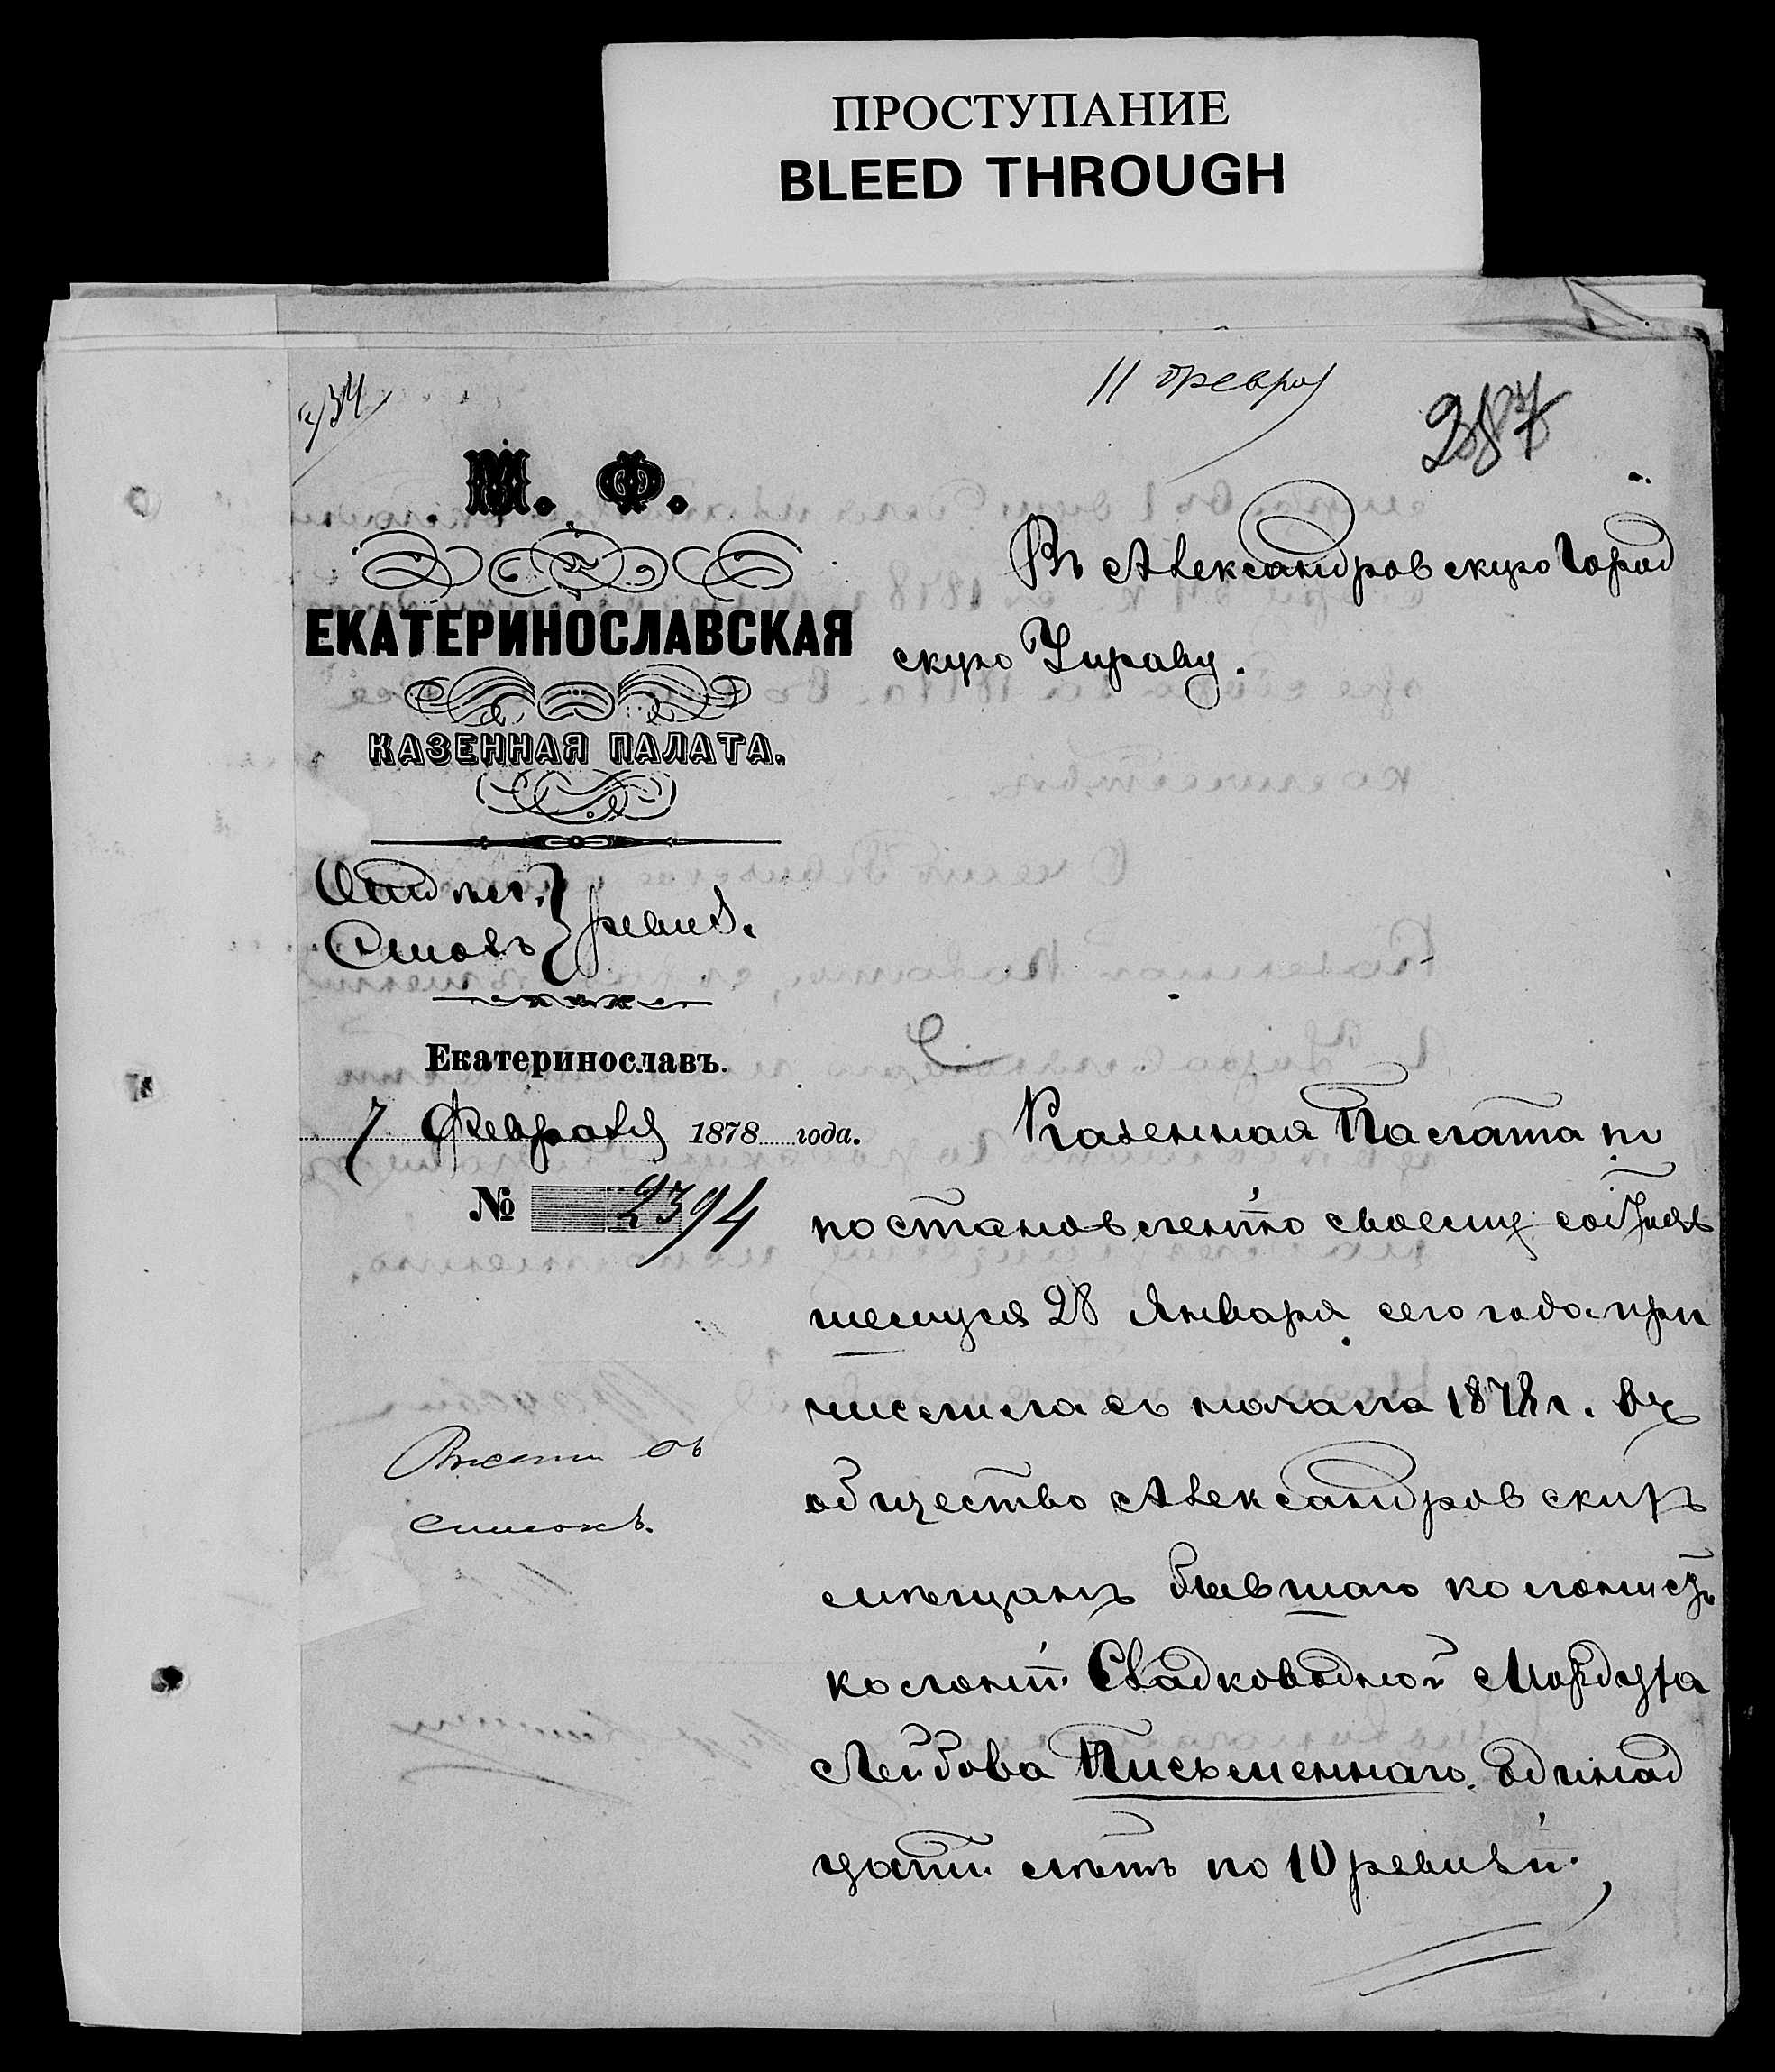 ПРОСТУПАНИЕ
BLEED THROUGH
11 февра
287
М. Ф.
ЕКАТЕРИНОСЛАВСКАЯ
КАЗЕННАЯ ПАЛАТА.
Отдѣл. ревиз.
Столъ
Екатеринославъ.
7 Февраля 1878 года.
№ 2394
Внести въ
списокъ.
Въ Александровскую Город
скую Управу.
Казенная Палата по
постановленію своему состояв
шемуся 28 Января сего года при
числила съ начала 1878 г. въ
общество Александровскихъ
мѣщанъ бывшаго колонист
колоніи Сладководной Мордуха
Лейбова Письменнаго. Одинад
цати лѣтъ по 10 ревизіи